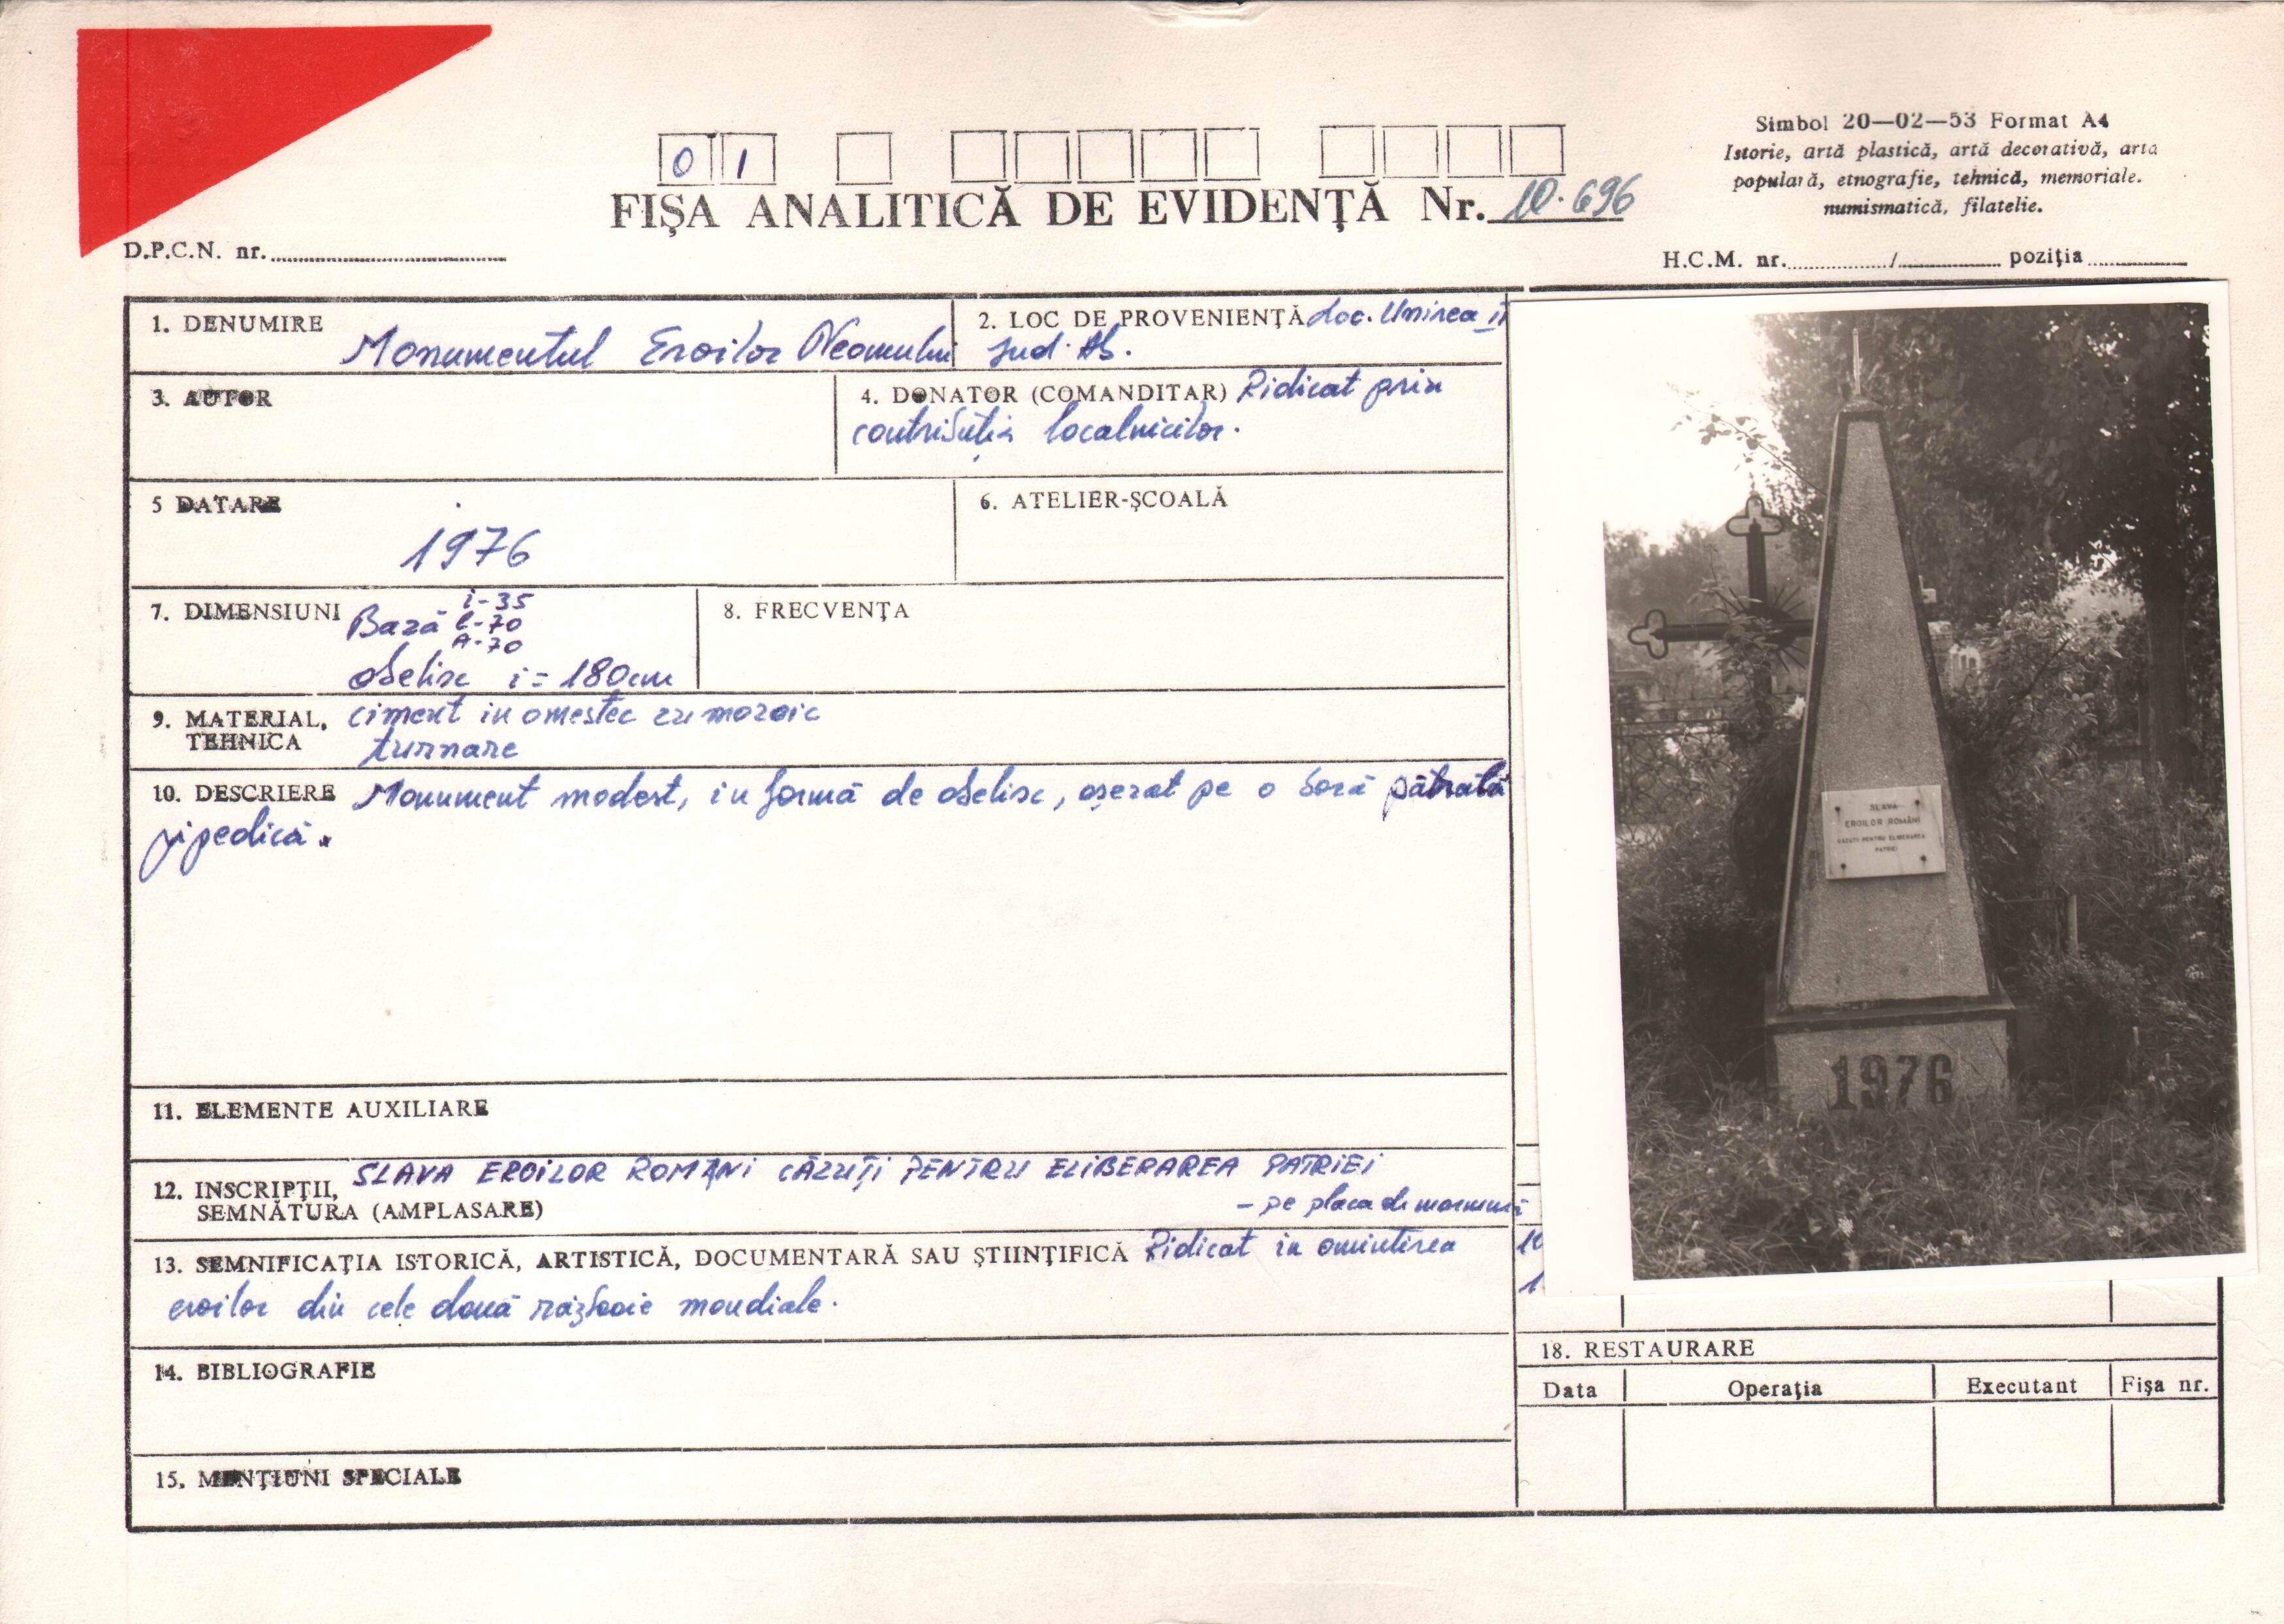 Simbol 20—02—53 Format A4
Istorie, artă plastică, artă decorativă, arta
populară, etnografie, tehnică, memoriale.
numismatică, filatelie.
0 1
FIŞA ANALITICĂ DE EVIDENŢĂ Nr. 10.696
D.P.C.N. nr.
H.C.M. nr. / poziţia
1. DENUMIRE Monumentul Eroilor Neamului
2. LOC DE PROVENIENŢĂ Loc. Unirea II
Jud. Ab.
3. AUTOR
4. DONATOR (COMANDITAR) Ridicat prin
contribuția localnicilor.
5 DATARE
1976
6. ATELIER-ŞCOALĂ
7. DIMENSIUNI Bază i-35
l-70
A-70
obelisc i = 180cm
8. FRECVENŢA
9. MATERIAL, TEHNICA ciment in amestec cu mozaic
turnare
10. DESCRIERE Monument modest, in formă de obelisc, așezat pe o bază pătrată
11. ELEMENTE AUXILIARE
12. INSCRIPŢII, SEMNĂTURA (AMPLASARE) SLAVA EROILOR ROMÂNI CĂZUȚI PENTRU ELIBERAREA PATRIEI
- pe placa de
13. SEMNIFICAŢIA ISTORICĂ, ARTISTICĂ, DOCUMENTARĂ SAU ŞTIINŢIFICĂ Ridicat in amintirea
eroilor din cele două războaie mondiale.
14. BIBLIOGRAFIE
15. MENŢIUNI SPECIALE
18. RESTAURARE
Data Operaţia Executant Fişa nr.
SLAVA
EROILOR ROMÂNI
CĂZUȚI PENTRU ELIBERAREA
PATRIEI
1976